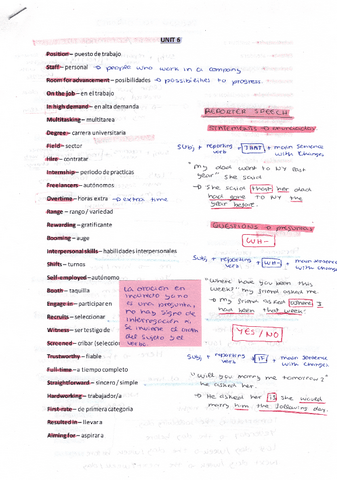 UNIT 6
Position – puesto de trabajo
Staff – personal → people who work in a company
Room for advancement – posibilidades → possibilities to progress.
On the job – en el trabajo
In high demand – en alta demanda
Multitasking – multitarea
Degree – carrera universitaria
Field – sector
Hire – contratar
Internship – periodo de practicas
Freelancers – autónomos
Overtime – horas extra → extra time
Range – rango / variedad
Rewarding – gratificante
Booming – auge
Interpersonal skills – habilidades interpersonales
Shifts – turnos
Self-employed – autónomo
Booth – taquilla
Engage in – participar en
Recruits – seleccionar
Witness – ser testigo de
Screened – cribar (seleccion
Trustworthy – fiable
Full-time – a tiempo completo
Straightforward – sincero / simple
Hardworking – trabajador/a
First-rate – de primera categoria
Resulted in – llevar a
Aiming for – aspirar a
La oración en
indirecto ya no
es una pregunta,
no hay signo de
interrogación ni
se invierte el orden
del sujeto y el
verbo.
REPORTED SPEECH
STATEMENTS → enunciados
Subj + reporting verb + THAT + main sentence with changes.
"my dad went to NY last
year" she said
→ She said that her dad
had gone to NY the
year before.
QUESTIONS → preguntas
WH-
Subj + reporting verb + WH- + main sentence with changes
"Where have you been this
week?" my friend asked me.
→ my friend asked where I
had been that week.
YES / NO
Subj + reporting verb + IF + main sentence with changes.
"Will you marry me tomorrow?"
he asked her.
→ He asked her if she would
marry him the following day.